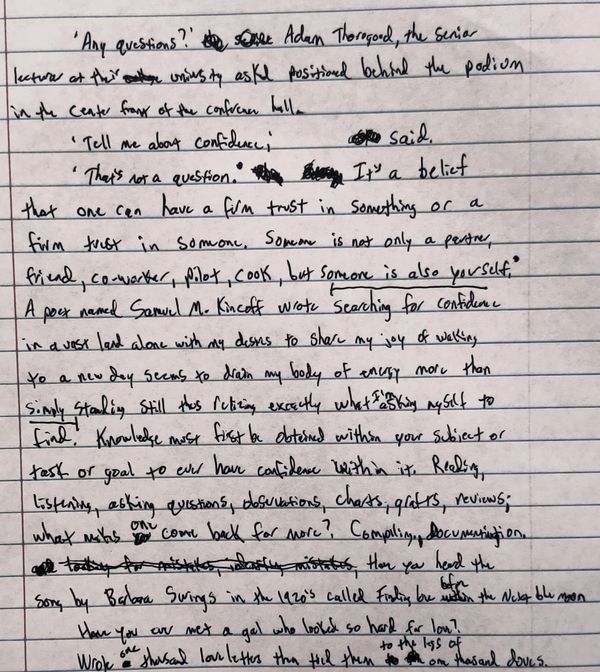 'Any questions?' Adam Thorogood, the senior
lecturer at their university asked positioned behind the podium
in the center front of the conference hall.
'Tell me about confidence,' said.
'That's not a question.' It's a belief
that one can have a firm trust in something or a
firm trust in someone. Someone is not only a partner,
friend, co-worker, pilot, cook, but someone is also yourself.
A poet named Samuel M. Kincoff wrote Searching for confidence
in a vast land alone with my desires to share my joy of walking
to a new day seems to drain my body of energy more than
simply standing still thus exactly what I'm asking myself to
find. Knowledge must first be obtained within your subject or
task or goal to ever have confidence within it. Reading,
listening, asking questions, observations, charts, grafts, reviews;
what makes one come back for more? Compiling, Documentation.
looking for mistakes, identify mistakes, Have you heard the
song by Barbara Swings in the 1920's called Finding love before the Next blue moon
Have you ever met a gal who looked so hard for love?
Wrote one thousand love letters then tied them to the legs of one thousand doves.